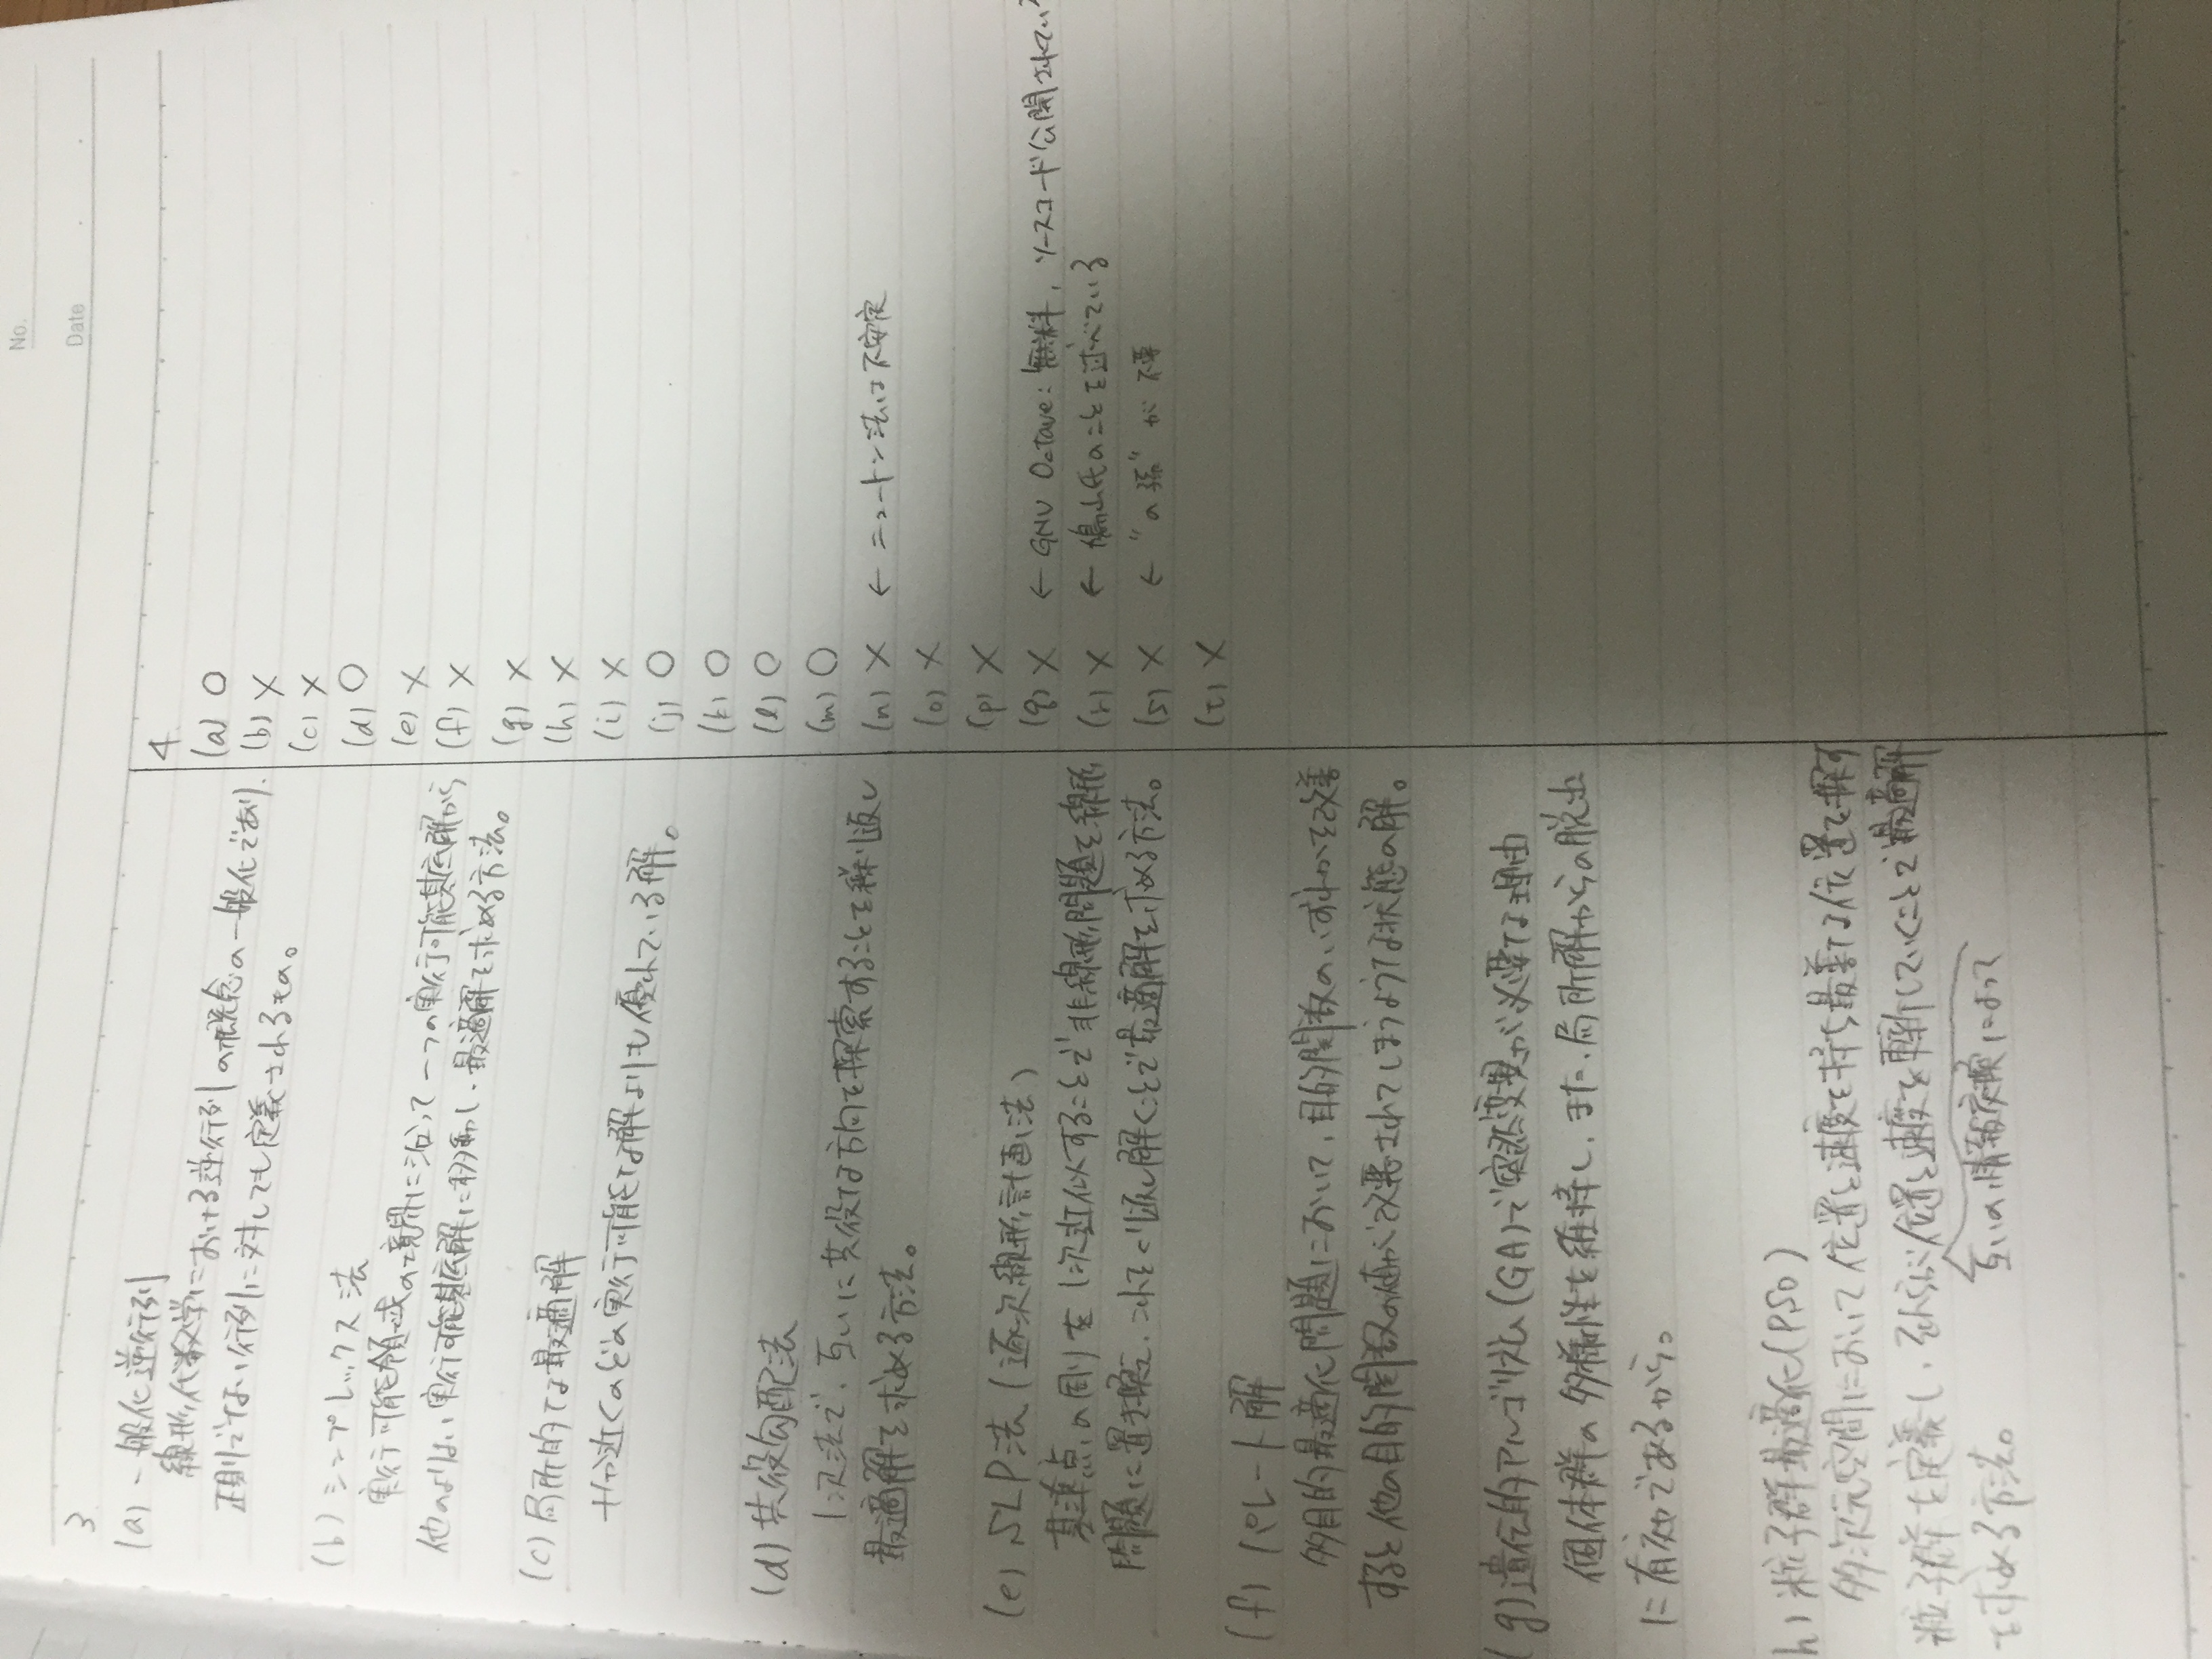 No.
Date
3.
(a) 一般化逆行列
線形代数学における逆行列の概念の一般化であり、
正則でない行列に対しても定義されるもの。
(b) シンプレックス法
実行可能領域の境界に沿って一つの実行可能基底解から
他のよりよい実行可能基底解に移動し、最適解を求める方法。
(c) 局所的な最適解
十分近くのどの実行可能な解よりも優れている解。
(d) 共役勾配法
1次法で、互いに共役な方向を探索することを繰り返し
最適解を求める方法。
(e) SLP法 (逐次線形計画法)
基準点の周りを1次近似することで非線形問題を線形
問題に置き換え、これをくり返し解くことで最適解を求める方法。
(f) パレート解
多目的最適化問題において、目的関数のいずれかを改善
すると他の目的関数の値が改悪されてしまうような状態の解。
(g) 遺伝的アルゴリズム(GA)で突然変異が必要な理由
個体群の多様性を維持し、また、局所解からの脱出
に有効であるから。
h) 粒子群最適化(PSO)
多次元空間において位置と速度を持ち最善な位置を探す
粒子群を定義し、それらが位置と速度を更新していくことで最適解
を求める方法。
互いの情報交換によって
4.
(a) ○
(b) ×
(c) ×
(d) ○
(e) ×
(f) ×
(g) ×
(h) ×
(i) ×
(j) ○
(k) ○
(l) ○
(m) ○
(n) × ← ニュートン法は不安定
(o) ×
(p) ×
(q) × ← GNU Octave: 無料, ソースコード公開されてい
(r) × ← 鳩山氏のことを述べている
(s) × ← "の孫" が 不要
(t) ×